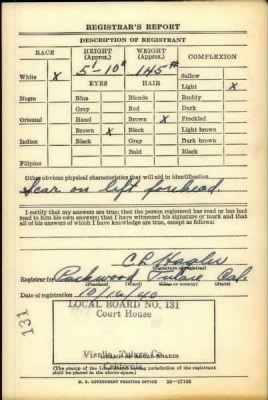 REGISTRAR'S REPORT
DESCRIPTION OF REGISTRANT
RACE HEIGHT (Approx.) WEIGHT (Approx.) COMPLEXION
5'-10" 145#
White X EYES HAIR Sallow
Light X
Negro Blue Blonde Ruddy
Gray Red Dark
Oriental Hazel Brown X Freckled
Brown X Black Light brown
Indian Black Gray Dark brown
Bald Black
Filipino
Other obvious physical characteristics that will aid in identification
Scar on left forehead.
I certify that my answers are true; that the person registered has read or has had
read to him his own answers; that I have witnessed his signature or mark and that
all of his answers of which I have knowledge are true, except as follows:
C. P.
(Signature of registrar)
Registrar for Tulare Cal.
(Precinct) (Ward) (City or county) (State)
Date of registration 10/16/40
LOCAL BOARD NO. 131
Court House
131
Visalia, Tulare Co.
California
(The stamp of the Local Board having jurisdiction of the registrant
shall be placed in the above space.)
U. S. GOVERNMENT PRINTING OFFICE 16-17105